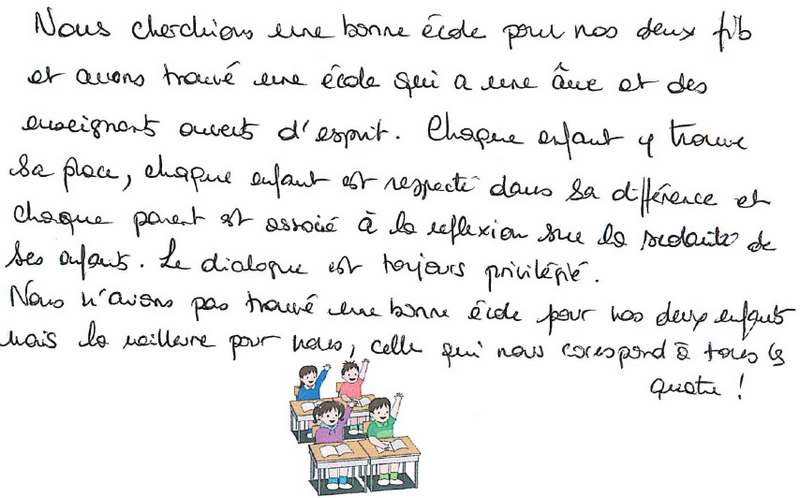 Nous cherchions une bonne école pour nos deux fils
et avons trouvé une école qui a une âme et des
enseignants ouverts d'esprit. Chaque enfant y trouve
sa place, chaque enfant est respecté dans sa différence et
chaque parent est associé à la réflexion sur la scolarité de
ses enfants. Le dialogue est toujours privilégié.
Nous n'avions pas trouvé une bonne école pour nos deux enfants
mais la meilleure pour nous, celle qui nous correspond à tous les
quatre !